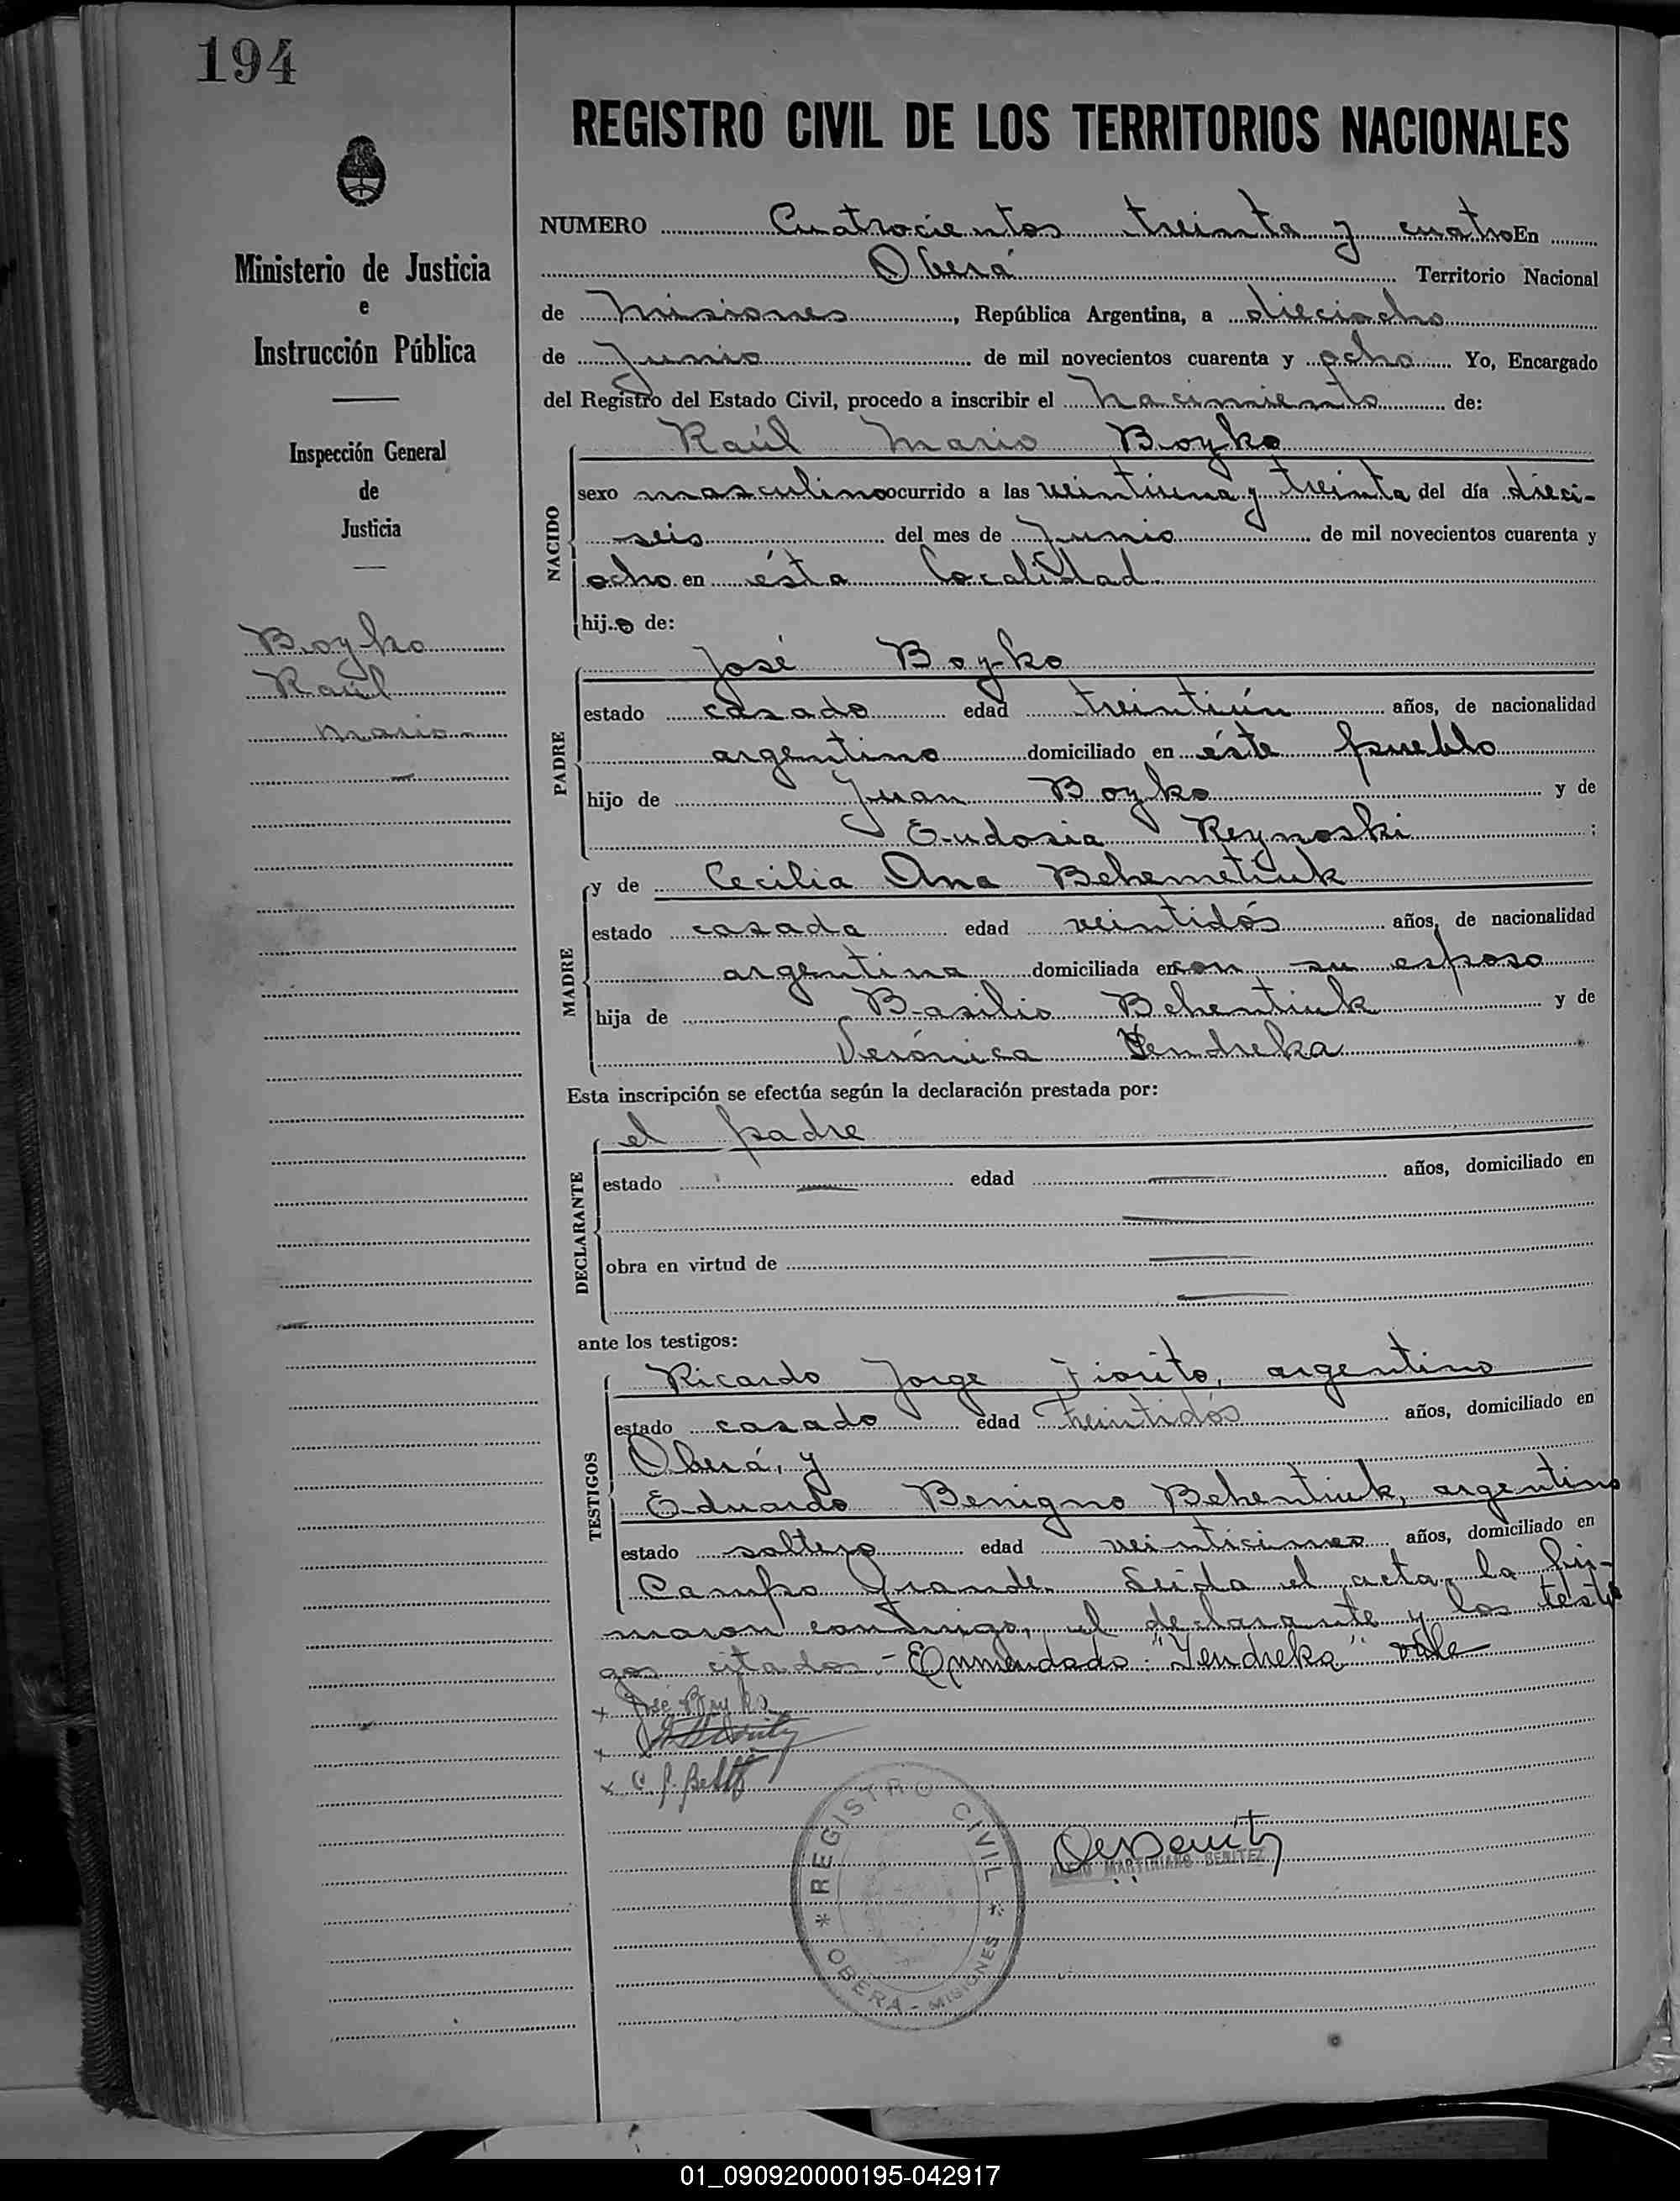 194
REGISTRO CIVIL DE LOS TERRITORIOS NACIONALES
Ministerio de Justicia
e
Instrucción Pública
Inspección General
de
Justicia
Boyko
Raúl
Mario
NUMERO Cuatrocientos treinta y cuatro En
Oberá Territorio Nacional
de Misiones, República Argentina, a dieciocho
de Junio de mil novecientos cuarenta y ocho Yo, Encargado
del Registro del Estado Civil, procedo a inscribir el nacimiento de:
NACIDO
Raúl Mario Boyko
sexo masculino ocurrido a las veintiuna y treinta del día dieci-
seis del mes de Junio de mil novecientos cuarenta y
ocho en ésta Localidad
hijo de:
PADRE
José Boyko
estado casado edad treintiún años, de nacionalidad
argentino domiciliado en éste pueblo
hijo de Juan Boyko y de
Eudosia Reynoski;
MADRE
y de Cecilia Ana Behemetiuk
estado casada edad veintidós años, de nacionalidad
argentina domiciliada en con su esposo
hija de Basilio Behentiuk y de
Verónica Yendreka
Esta inscripción se efectúa según la declaración prestada por:
DECLARANTE
el padre
estado edad años, domiciliado en
obra en virtud de
ante los testigos:
TESTIGOS
Ricardo Jorge Fiorito, argentino
estado casado edad treintidós años, domiciliado en
Oberá, y
Eduardo Benigno Behentiuk, argentino
estado soltero edad veinticinco años, domiciliado en
Campo Grande. Leída el acta, la fir-
maron conmigo, el declarante y los testi
gos citados - Enmendado: "Yendreka" vale
x José Boyko
x
x
REGISTRO CIVIL
OBERA - MISIONES
MARTINIANO BENITEZ
01_090920000195-042917